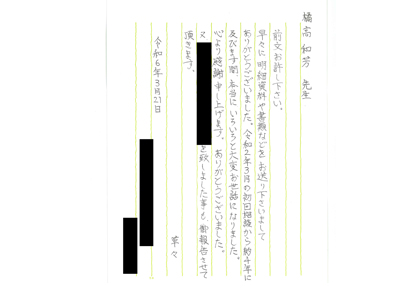 橘高 和芳 先生
前文お許し下さい。
早々に明細資料や書類などをお送り下さいまして
ありがとうございました。令和2年3月の初回相続から約4年に
及びます間、本当にいろいろと大変お世話になりました。
心より感謝申し上げます。ありがとうございました。
又
を致しました事も御報告させて
頂きます。
草々
令和6年3月21日